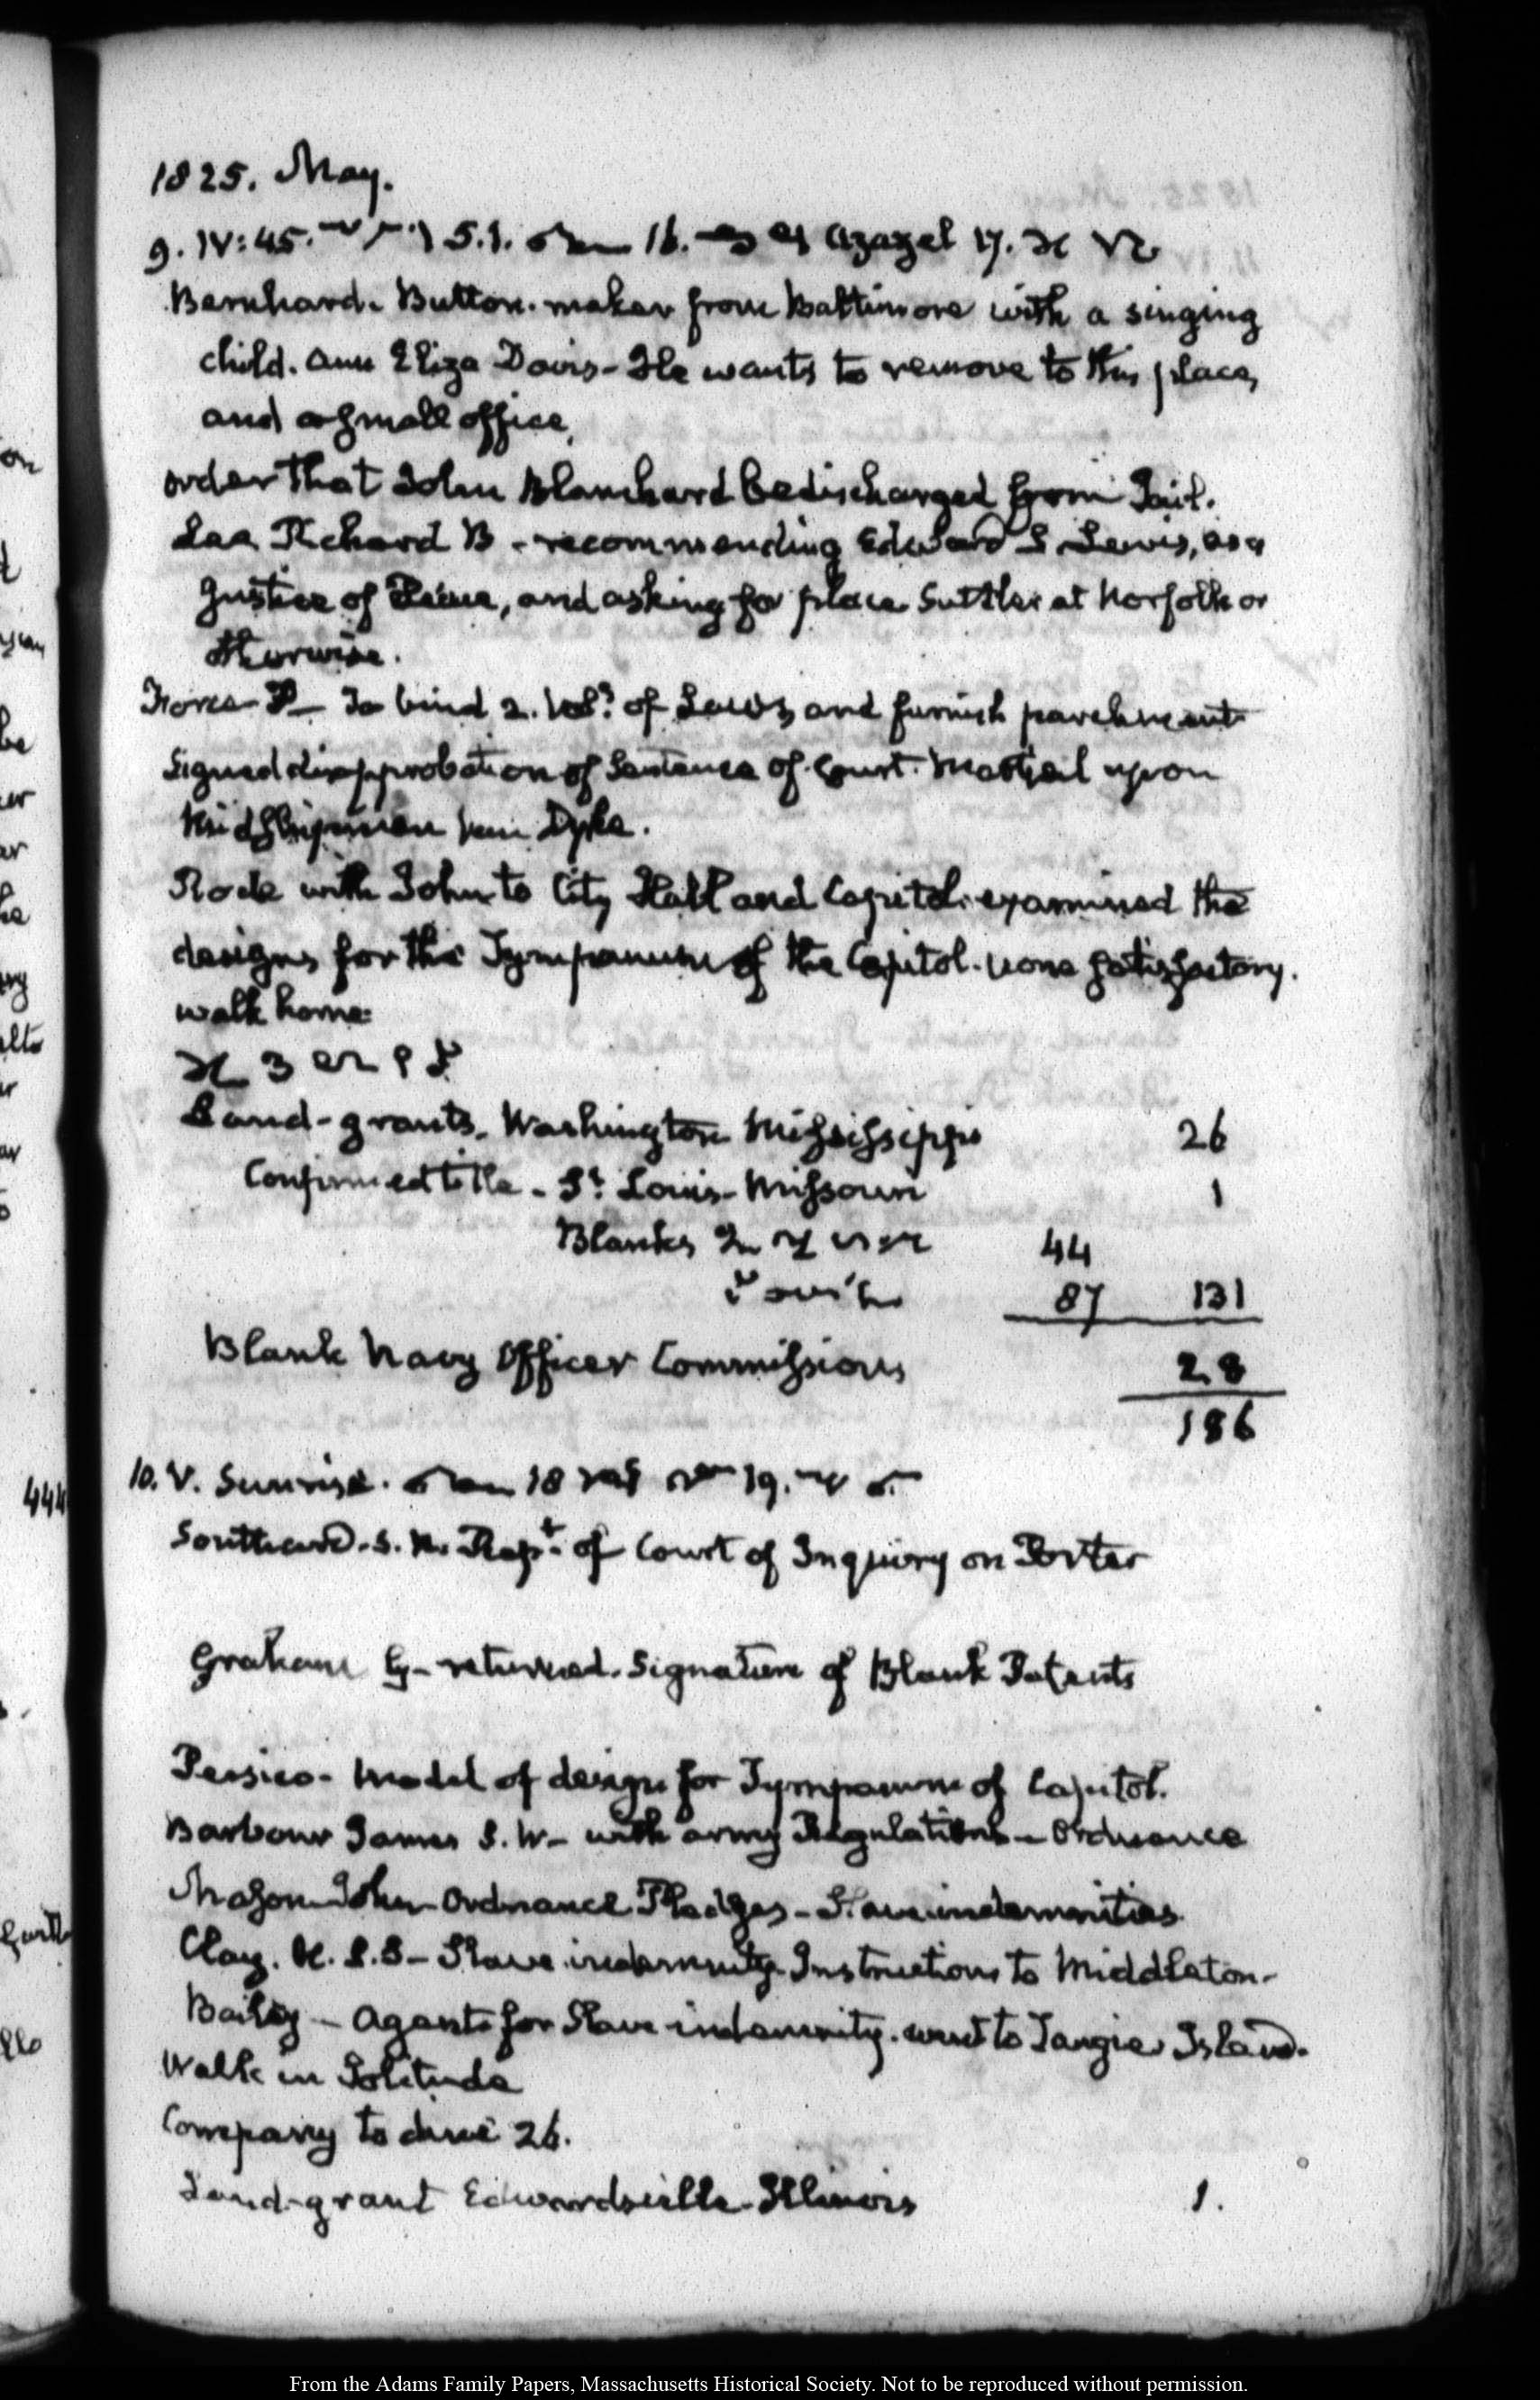 1825. May.
9. IV: 45. 5.1. 16. Azazel 17.
Bernhard. Button-maker from Baltimore with a singing
child. Ann Eliza Davis - He wants to remove to this place,
and a small office,
order that John Blanchard be discharged from Jail.
Lee Richard B - recommending Edward S. Lewis, as a
Justice of Peace, and asking for place Suttler at Norfolk or
otherwise.
Force P - To bind 2. Vols. of Laws, and furnish parchment
Signed disapprobation of Sentence of Court. Martial upon
Midshipman Van Dyke.
Rode with John to City Hall and Capitol. examined the
designs for the Tympanum of the Capitol. none satisfactory.
walk home:
3
Land-grants. Washington Mississippi 26
Confirmed title - St. Louis - Missouri 1
Blanks 44
87 131
Blank Navy Officer Commissions 28
186
10. V. Sunrise. 18 19.
Southard. S. N. Rept. of Court of Inquiry on Porter
Graham G - returned. Signature of Blank Patents
Persico - Model of design for Tympanum of Capitol.
Barbour James S. W - with army Regulations - Ordnance
Mason John - Ordnance Pledges - Slave indemnities
Clay. H. S.S - Slave indemnity. Instructions to Middleton -
Bailey - Agent for Slave indemnity. went to Tangier Island.
Walk in Solitude
Company to dine 26.
Land-grant Edwardsville Illinois 1.
444
From the Adams Family Papers, Massachusetts Historical Society. Not to be reproduced without permission.